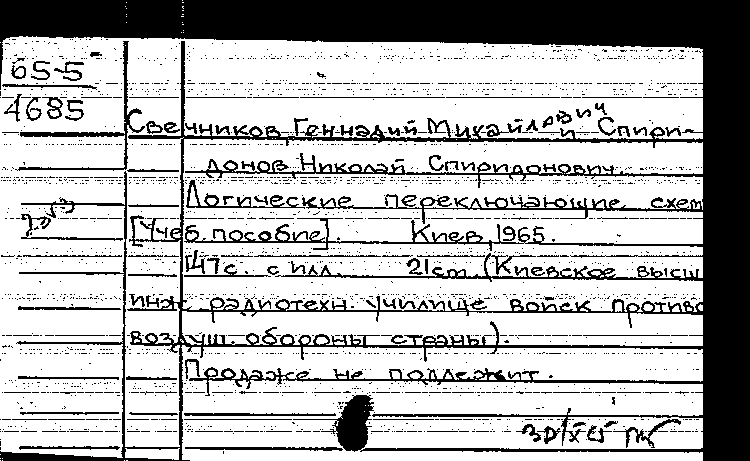 65-5
4685
Свечников, Геннадий Михайлович и Спири-
донов, Николай Спиридонович.
Логические переключающие схем
[Учеб. пособие]. Киев, 1965.
147с. с илл. 21cm. (Киевское высш
инж. радиотехн. училище войск противо
воздуш. обороны страны).
Продаже не подлежит.